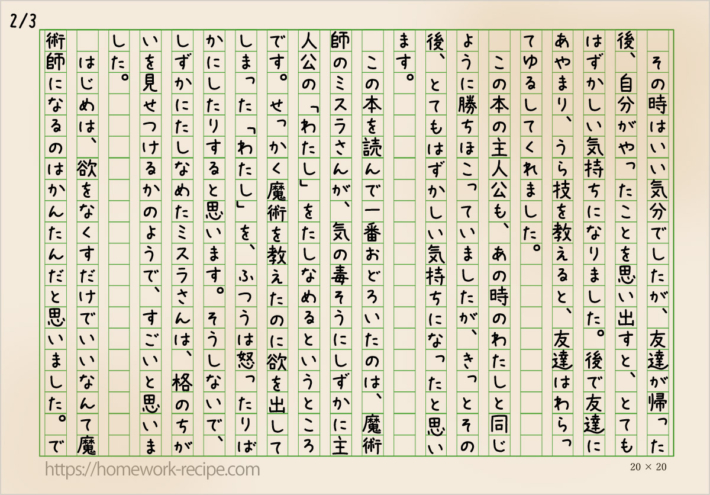 2/3
　その時はいい気分でしたが、友達が帰った
後、自分がやったことを思い出すと、とても
はずかしい気持ちになりました。後で友達に
あやまり、うら技を教えると、友達はわらっ
てゆるしてくれました。
　この本の主人公も、あの時のわたしと同じ
ように勝ちほこっていましたが、きっとその
後、とてもはずかしい気持ちになったと思い
ます。
　この本を読んで一番おどろいたのは、魔術
師のミスラさんが、気の毒そうにしずかに主
人公の「わたし」をたしなめるというところ
です。せっかく魔術を教えたのに欲を出して
しまった「わたし」を、ふつうは怒ったりば
かにしたりすると思います。そうしないで、
しずかにたしなめたミスラさんは、格のちが
いを見せつけるかのようで、すごいと思いま
した。
　はじめは、欲をなくすだけでいいなんて魔
術師になるのはかんたんだと思いました。で
https://homework-recipe.com
20 × 20